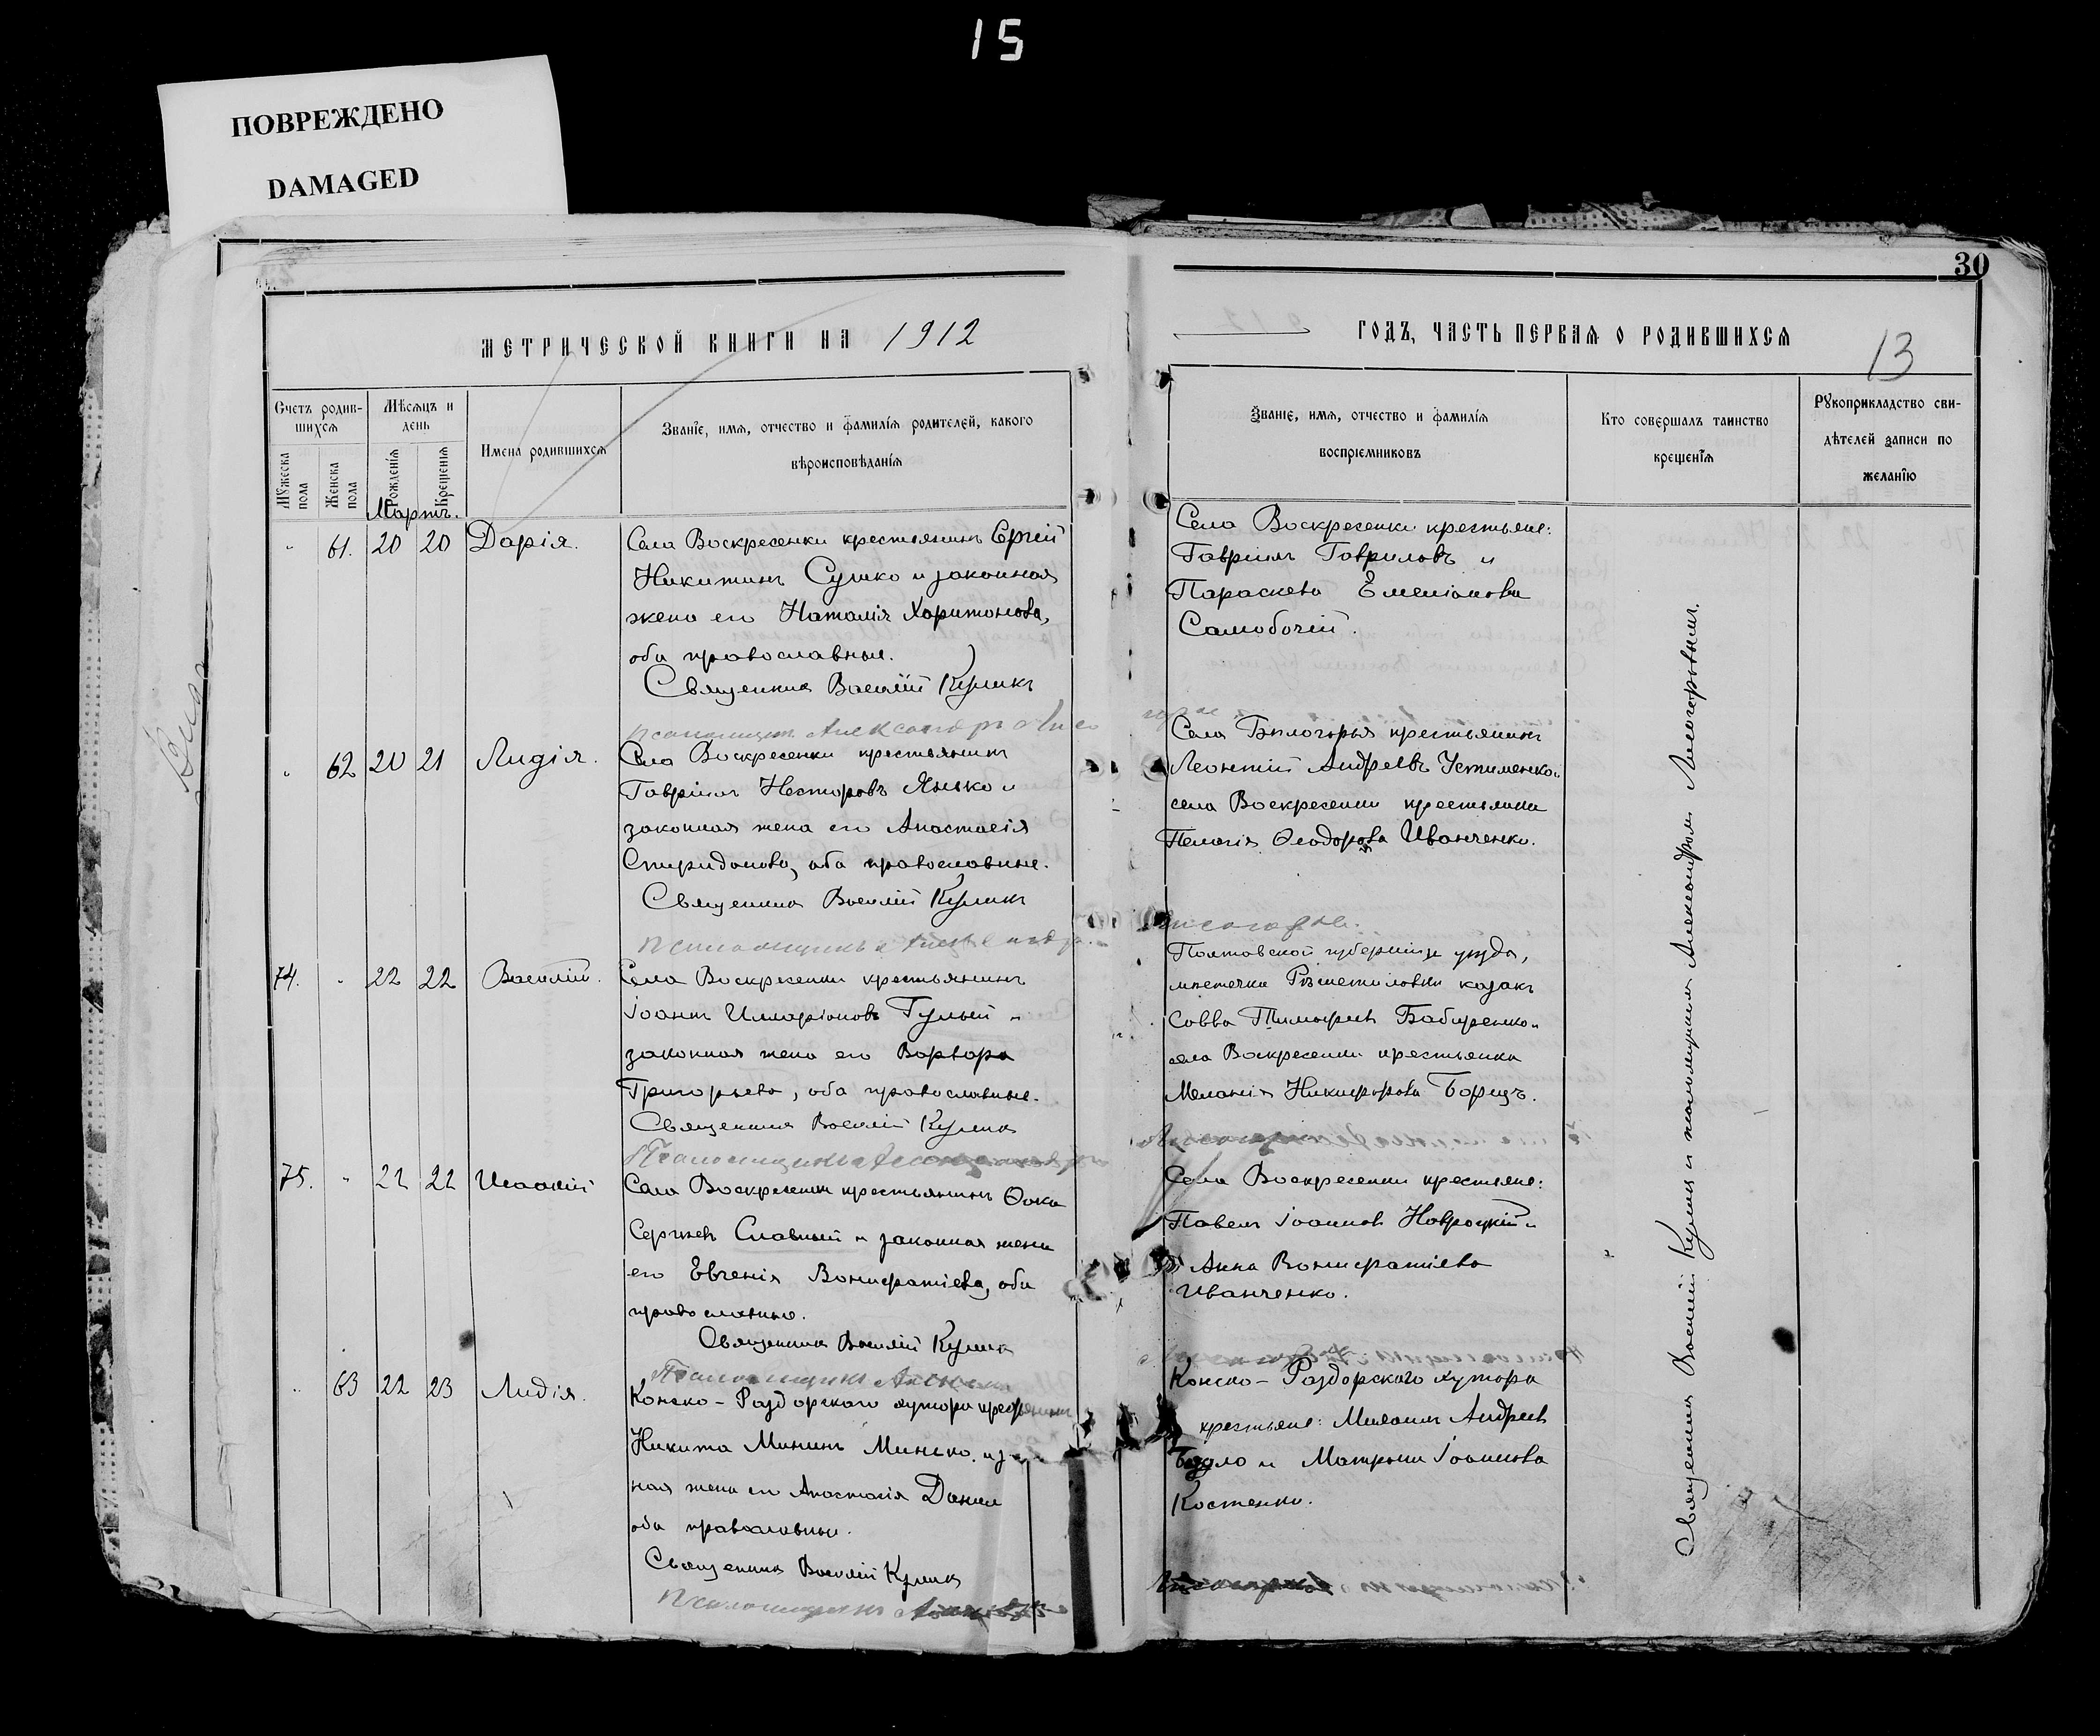 15
ПОВРЕЖДЕНО
DAMAGED
30
МЕТРИЧЕСКОЙ КНИГИ НА 1912
ГОДЪ, ЧАСТЬ ПЕРВАЯ О РОДИВШИХСЯ
13
Счетъ родив-
шихся
Мужеска пола
Женска пола
Мѣсяцъ и
день
Рожденія
Крещенія
Имена родившихся
Званіе, имя, отчество и фамилія родителей, какого
вѣроисповѣданія
Званіе, имя, отчество и фамилія
воспріемниковъ
Кто совершалъ таинство
крещенія
Рукоприкладство сви-
дѣтелей записи по
желанію
Мартъ.
61. 20 20 Дарія.
Села Воскресенки крестьянинъ Сергій
Никитинъ Сушко и законная
жена его Наталія Харитонова,
оба православные.
Священникъ Василій Куликъ
Псаломщикъ Александръ
Села Воскресенки крестьяне:
Гавріилъ Гавриловъ и
Параскева Емеліанова
Самобочій.
62 20 21 Лидія.
Села Воскресенки крестьянинъ
Гавріилъ Несторовъ Янько и
законная жена его Анастасія
Спиридонова, оба православные.
Священникъ Василій Куликъ
Псаломщикъ
Села Бѣлогорья крестьянинъ
Леонтій Андреевъ Устименко и
села Воскресенки крестьянка
Пелагія Ѳеодорова Иванченко.
74. 22 22 Василій.
Села Воскресенки крестьянинъ
Іоаннъ Иларіоновъ Гулый и
законная жена его Варвара
Григорьева, оба православные.
Священникъ Василій Куликъ
Псаломщикъ
Полтавской губерніи и уѣзда,
мѣстечка Рѣшетиловки козакъ
Савва Тимофеевъ Бабиренко и
села Воскресенки крестьянка
Меланія Никифорова Борецъ.
75. 22 22
Села Воскресенки крестьянинъ Ѳока
Сергѣевъ Славный и законная жена
его Евгенія Вонифатіева, оба
православные.
Священникъ Василій Куликъ
Псаломщикъ
Села Воскресенки крестьяне:
Павелъ Іоанновъ Навроцкій и
Анна Вонифатіева
Иванченко.
63 22 23 Лидія.
Конско-Раздорского хутора крестьянинъ
Никита Мининъ Минско и
ная жена его Анастасія Данил
оба православные.
Священникъ Василій Куликъ
Псаломщикъ
Конско-Раздорского хутора
крестьяне: Михаилъ Андреевъ
и Матрона Іоаннова
Костенко.
Священникъ Василій Куликъ и псаломщикъ Александръ Лисогорскій.